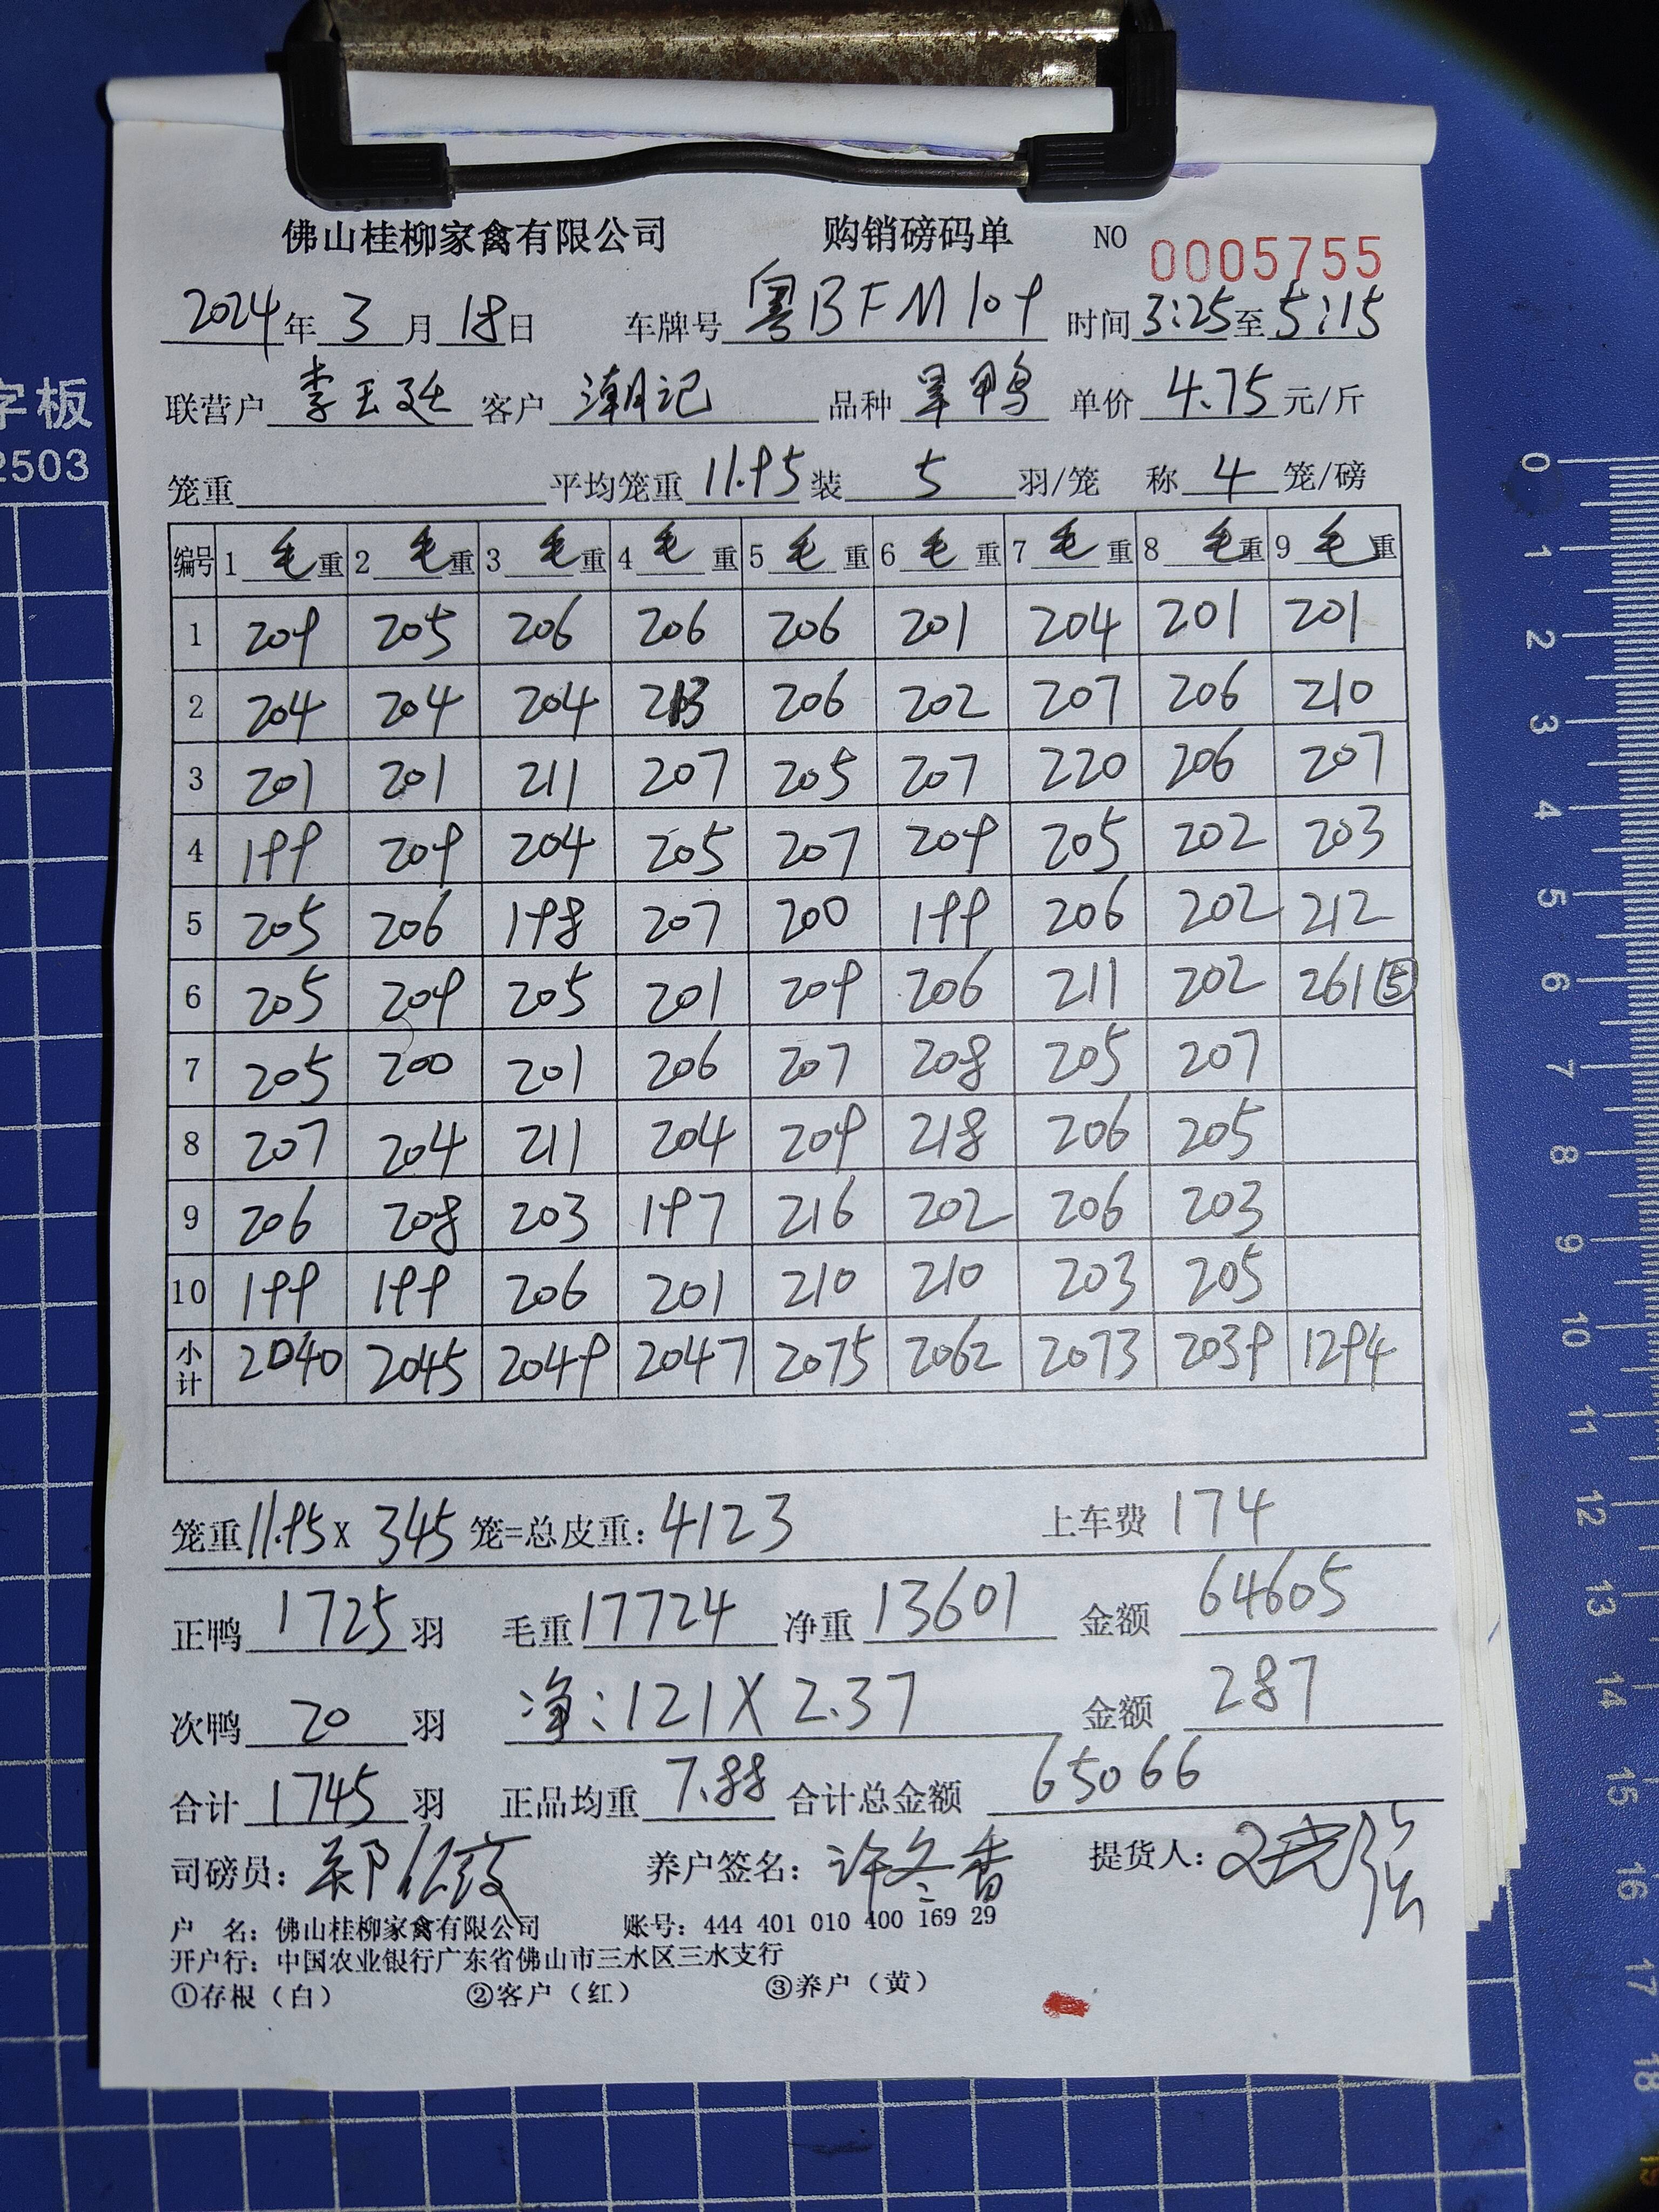 佛山桂柳家禽有限公司 购销磅码单 NO 0005755
2024年 3 月 18日 车牌号 粤BFM109 时间 3:25 至 5:15
联营户 李玉廷 客户 潮记 品种 旱鸭 单价 4.75 元/斤
笼重 平均笼重 11.95 装 5 羽/笼 称 4 笼/磅
编号 1 毛重 2 毛重 3 毛重 4 毛重 5 毛重 6 毛重 7 毛重 8 毛重 9 毛重
1 209 205 206 206 206 201 204 201 201
2 204 204 204 213 206 202 207 206 210
3 201 201 211 207 205 207 220 206 207
4 199 209 204 205 207 209 205 202 203
5 205 206 198 207 200 199 206 202 212
6 205 209 205 201 209 206 211 202 261⑤
7 205 200 201 206 207 208 205 207
8 207 204 211 204 209 218 206 205
9 206 208 203 197 216 202 206 203
10 199 199 206 201 210 210 203 205
小计 2040 2045 2049 2047 2075 2062 2073 2039 1294
笼重 11.95 X 345 笼=总皮重: 4123 上车费 174
正鸭 1725 羽 毛重 17724 净重 13601 金额 64605
次鸭 20 羽 净:121 X 2.37 金额 287
合计 1745 羽 正品均重 7.88 合计总金额 65066
司磅员: 郑 养户签名: 许冬香 提货人:
户 名: 佛山桂柳家禽有限公司 账号: 444 401 010 400 169 29
开户行: 中国农业银行广东省佛山市三水区三水支行
①存根(白) ②客户(红) ③养户(黄)
字板
2503
0 1 2 3 4 5 6 7 8 9 10 11 12 13 14 15 16 17 18